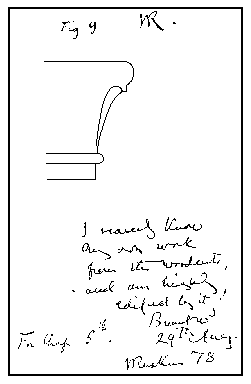 Fig 9 JR.
I scarcely know
my own work
from the woodcuts,
and am highly
edified by it!
Brantwood
For Chap 5th. 29th Aug.
JRuskin '78